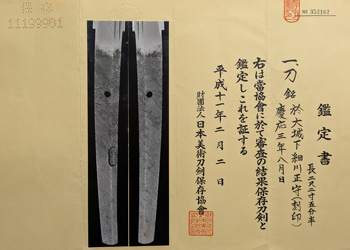 鑑定書
一、刀 銘 於大城下細川正守(刻印)
慶応三年八月日
長二尺二寸五分半
右は當協會に於て審査の結果保存刀剣と
鑑定しこれを証する
平成十一年二月二日
財團法人 日本美術刀剣保存協會
保存
11199901
Nº 352162